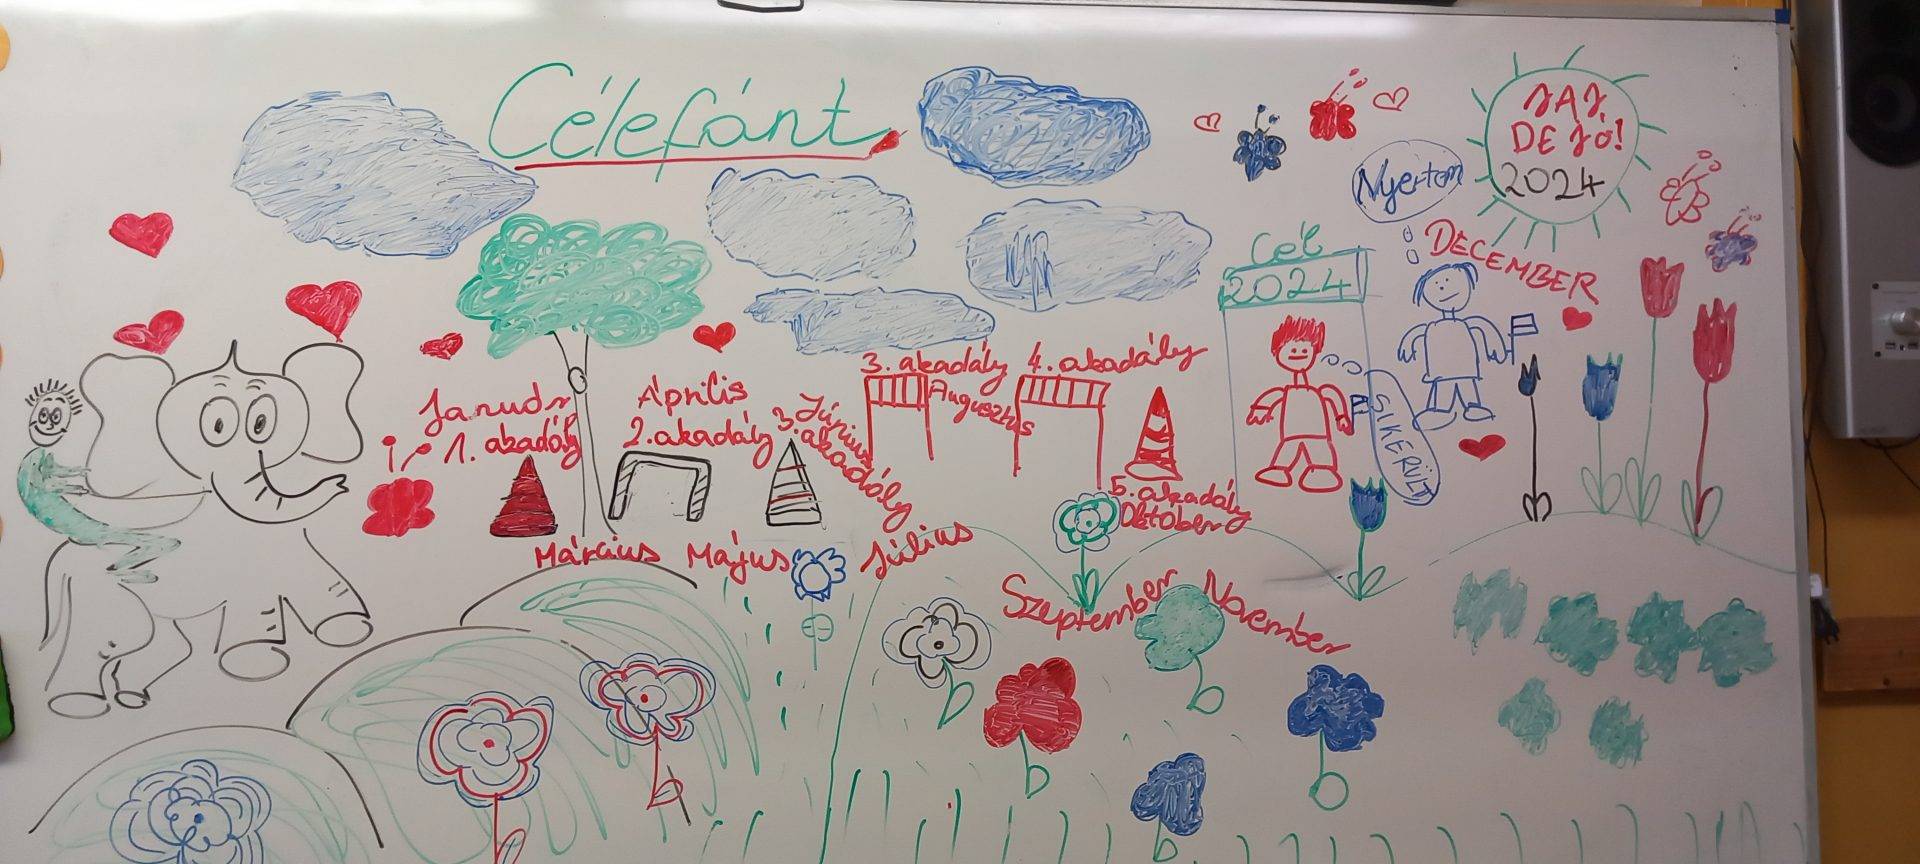 Célefánt
JAJ
DE JÓ!
2024
Nyertem
DECEMBER
Cél
2024
SIKERÜLT
Január
1. akadály
Április
2. akadály
Június
3. akadály
3. akadály
Augusztus
4. akadály
5. akadály
Október
Március
Május
Július
Szeptember
November